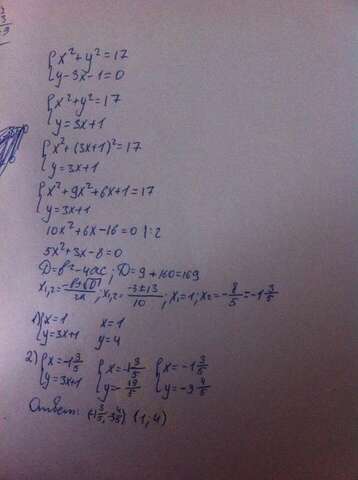 {x²+y²=17
{y-3x-1=0
{x²+y²=17
{y=3x+1
{x²+(3x+1)²=17
{y=3x+1
{x²+9x²+6x+1=17
{y=3x+1
10x²+6x-16=0 |:2
5x²+3x-8=0
D=b²-4ac; D=9+160=169
x₁,₂=-b±√D/2a; x₁,₂=-3±13/10; x₁=1; x₂=-8/5=-1 3/5
1) {x=1 x=1
{y=3x+1 y=4
2) {x=-1 3/5 {x=-1 3/5 {x=-1 3/5
{y=3x+1 {y=-19/5 {y=-3 4/5
Ответ: (-1 3/5; -3 4/5) (1; 4)